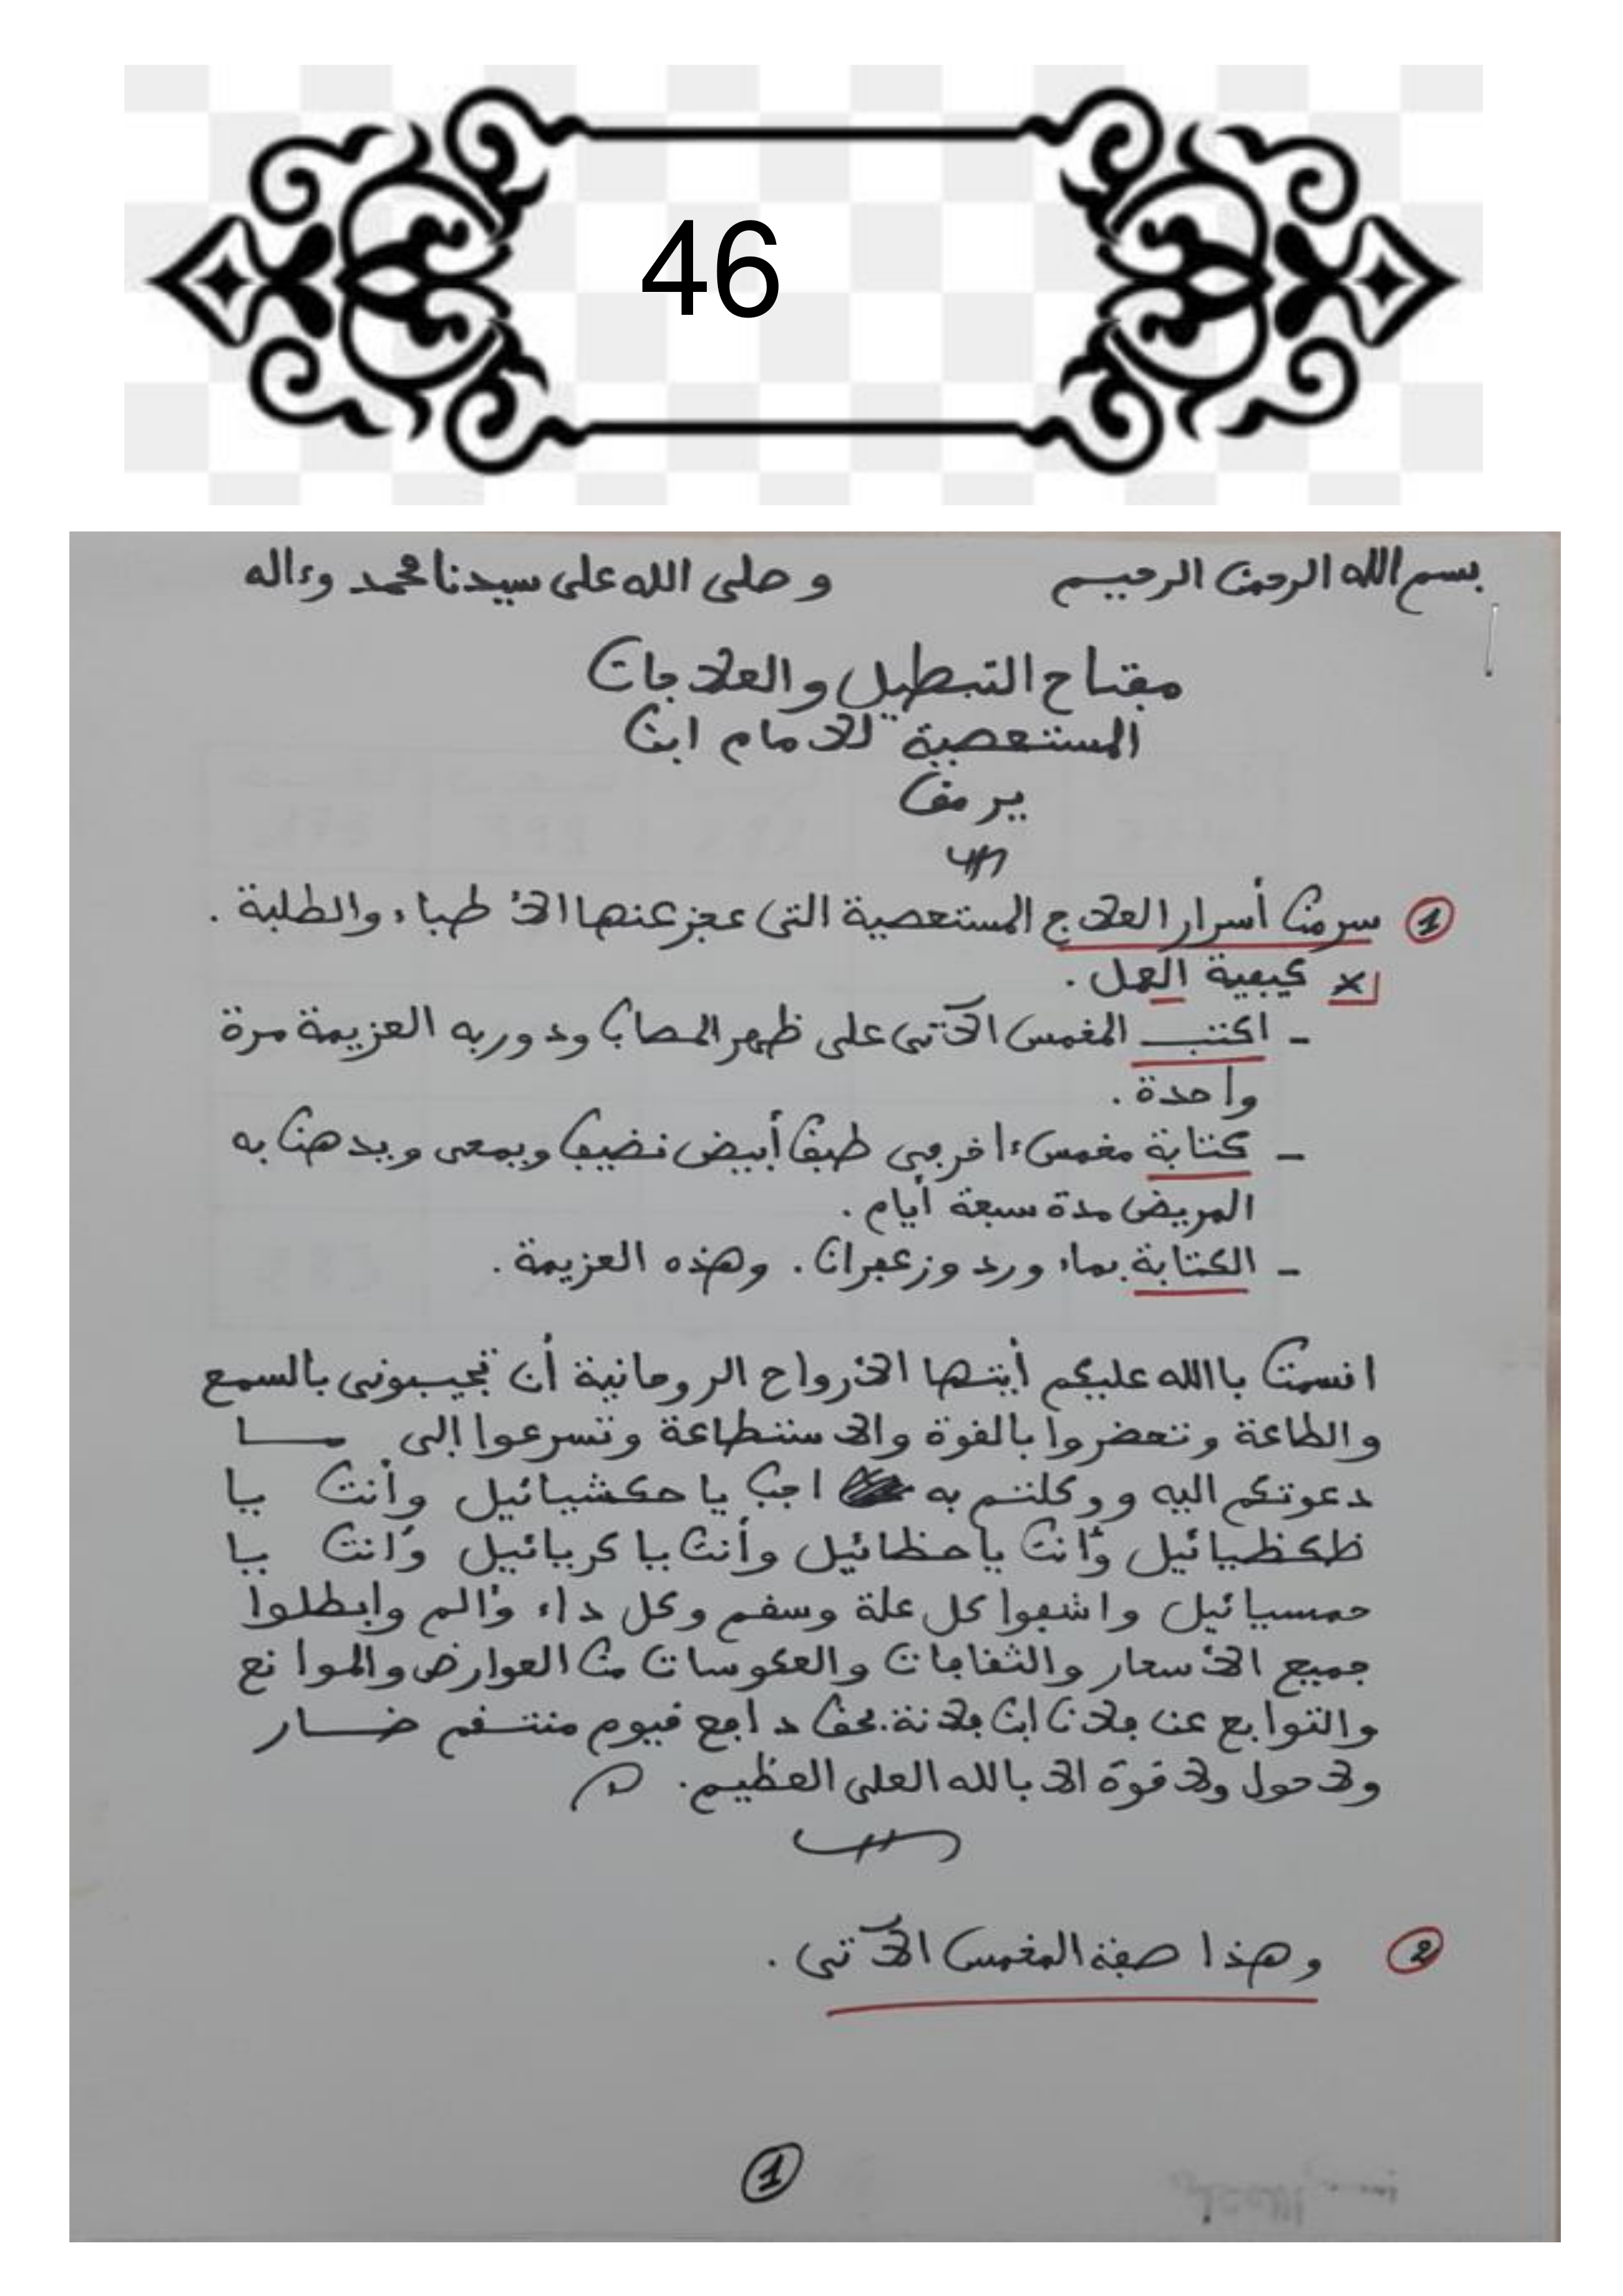 46
بسم الله الرحمن الرحيم وصلى الله على سيدنا محمد وءاله
مفتاح التبطيل والعلاجات
المستعصية للامام ابن
يرمق
1 سر من أسرار العلاج المستعصية التى عجز عنها الأطباء والطلبة .
كيفية العمل .
- اكتب المخمس الآتى على ظهر المصاب ودور به العزيمة مرة
واحدة .
- كتابة مخمس ءاخر في طبق أبيض نضيف ويمحى ويدهن به
المريض مدة سبعة أيام .
- الكتابة بماء ورد وزعفران . وهذه العزيمة .
اقسمت باالله عليكم أيتها الأرواح الروحانية أن تجيبوني بالسمع
والطاعة وتحضروا بالقوة والاستطاعة وتسرعوا إلى ما
دعوتكم اليه ووكلتم به اجب يا حكشيائيل وأنت يا
ظكظيائيل وأنت يا حظائيل وأنت يا كريائيل وأنت يا
حمسيائيل واشفوا كل علة وسقم وكل داء وألم وابطلوا
جميع الأسحار والثقافات والعكوسات من العوارض والموانع
والتوابع عن فلان ابن فلانة بحق دافع قيوم منتقم ضار
ولا حول ولا قوة الا بالله العلى العظيم .
2 وهذا صفة المخمس الآتى .
1